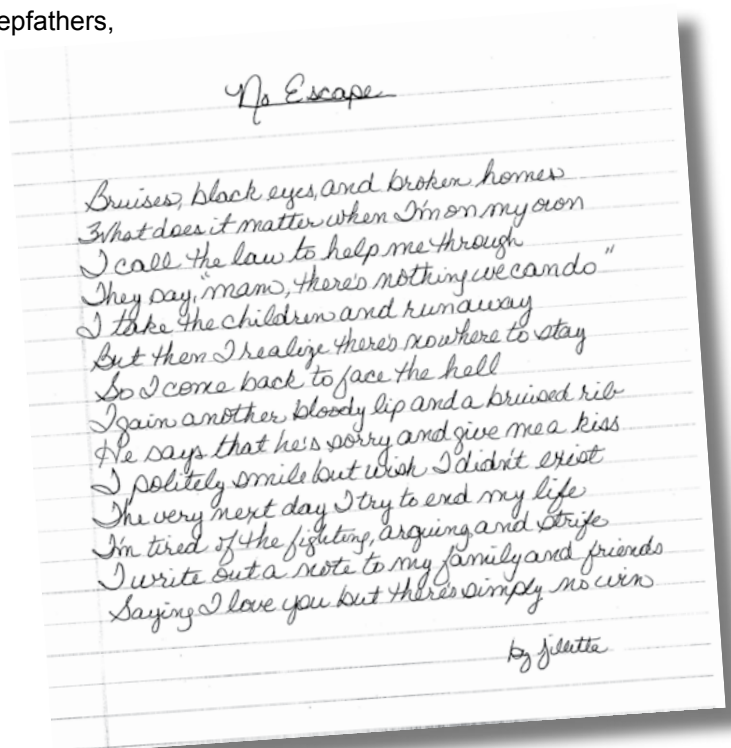 epfathers,
No Escape
Bruises, black eyes, and broken homes
What does it matter when I'm on my own
I call the law to help me through
They say, "mam, there's nothing we can do"
I take the children and runaway
But then I realize there's nowhere to stay
So I come back to face the hell
I gain another bloody lip and a bruised rib
He says that he's sorry and give me a kiss
I politely smile but wish I didn't exist
The very next day I try to end my life
I'm tired of the fighting, arguing and strife
I write out a note to my family and friends
Saying I love you but there's simply no win
by